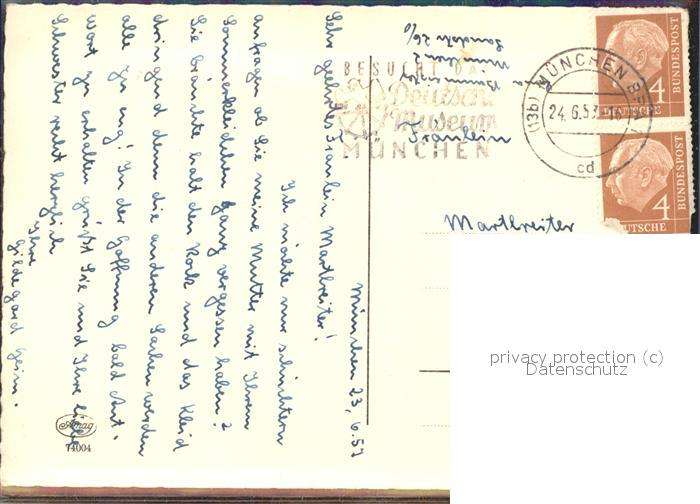 München 23.6.57
Sehr geehrtes Fräulein Martlreiter!
Ich möchte nur schüchtern
anfragen ob Sie meine Mutter mit Ihrem
Sommerkleidchen ganz vergessen haben?
Sie bräuchte halt den Rock und das Kleid
dringend denn die anderen Sachen werden
alle zu eng! In der Hoffnung bald Ant-
wort zu erhalten grüßt Sie und Ihre liebe
Schwester recht herzlich
Ihre
Hildegard
Amag
74004
München 2
Landstr. 26
BESUCHT DAS
Deutsche
Museum
MÜNCHEN
(13b) MÜNCHEN
24.6.57
cd
4
DEUTSCHE BUNDESPOST
4
DEUTSCHE BUNDESPOST
Fräulein
Martlreiter
privacy protection (c)
Datenschutz